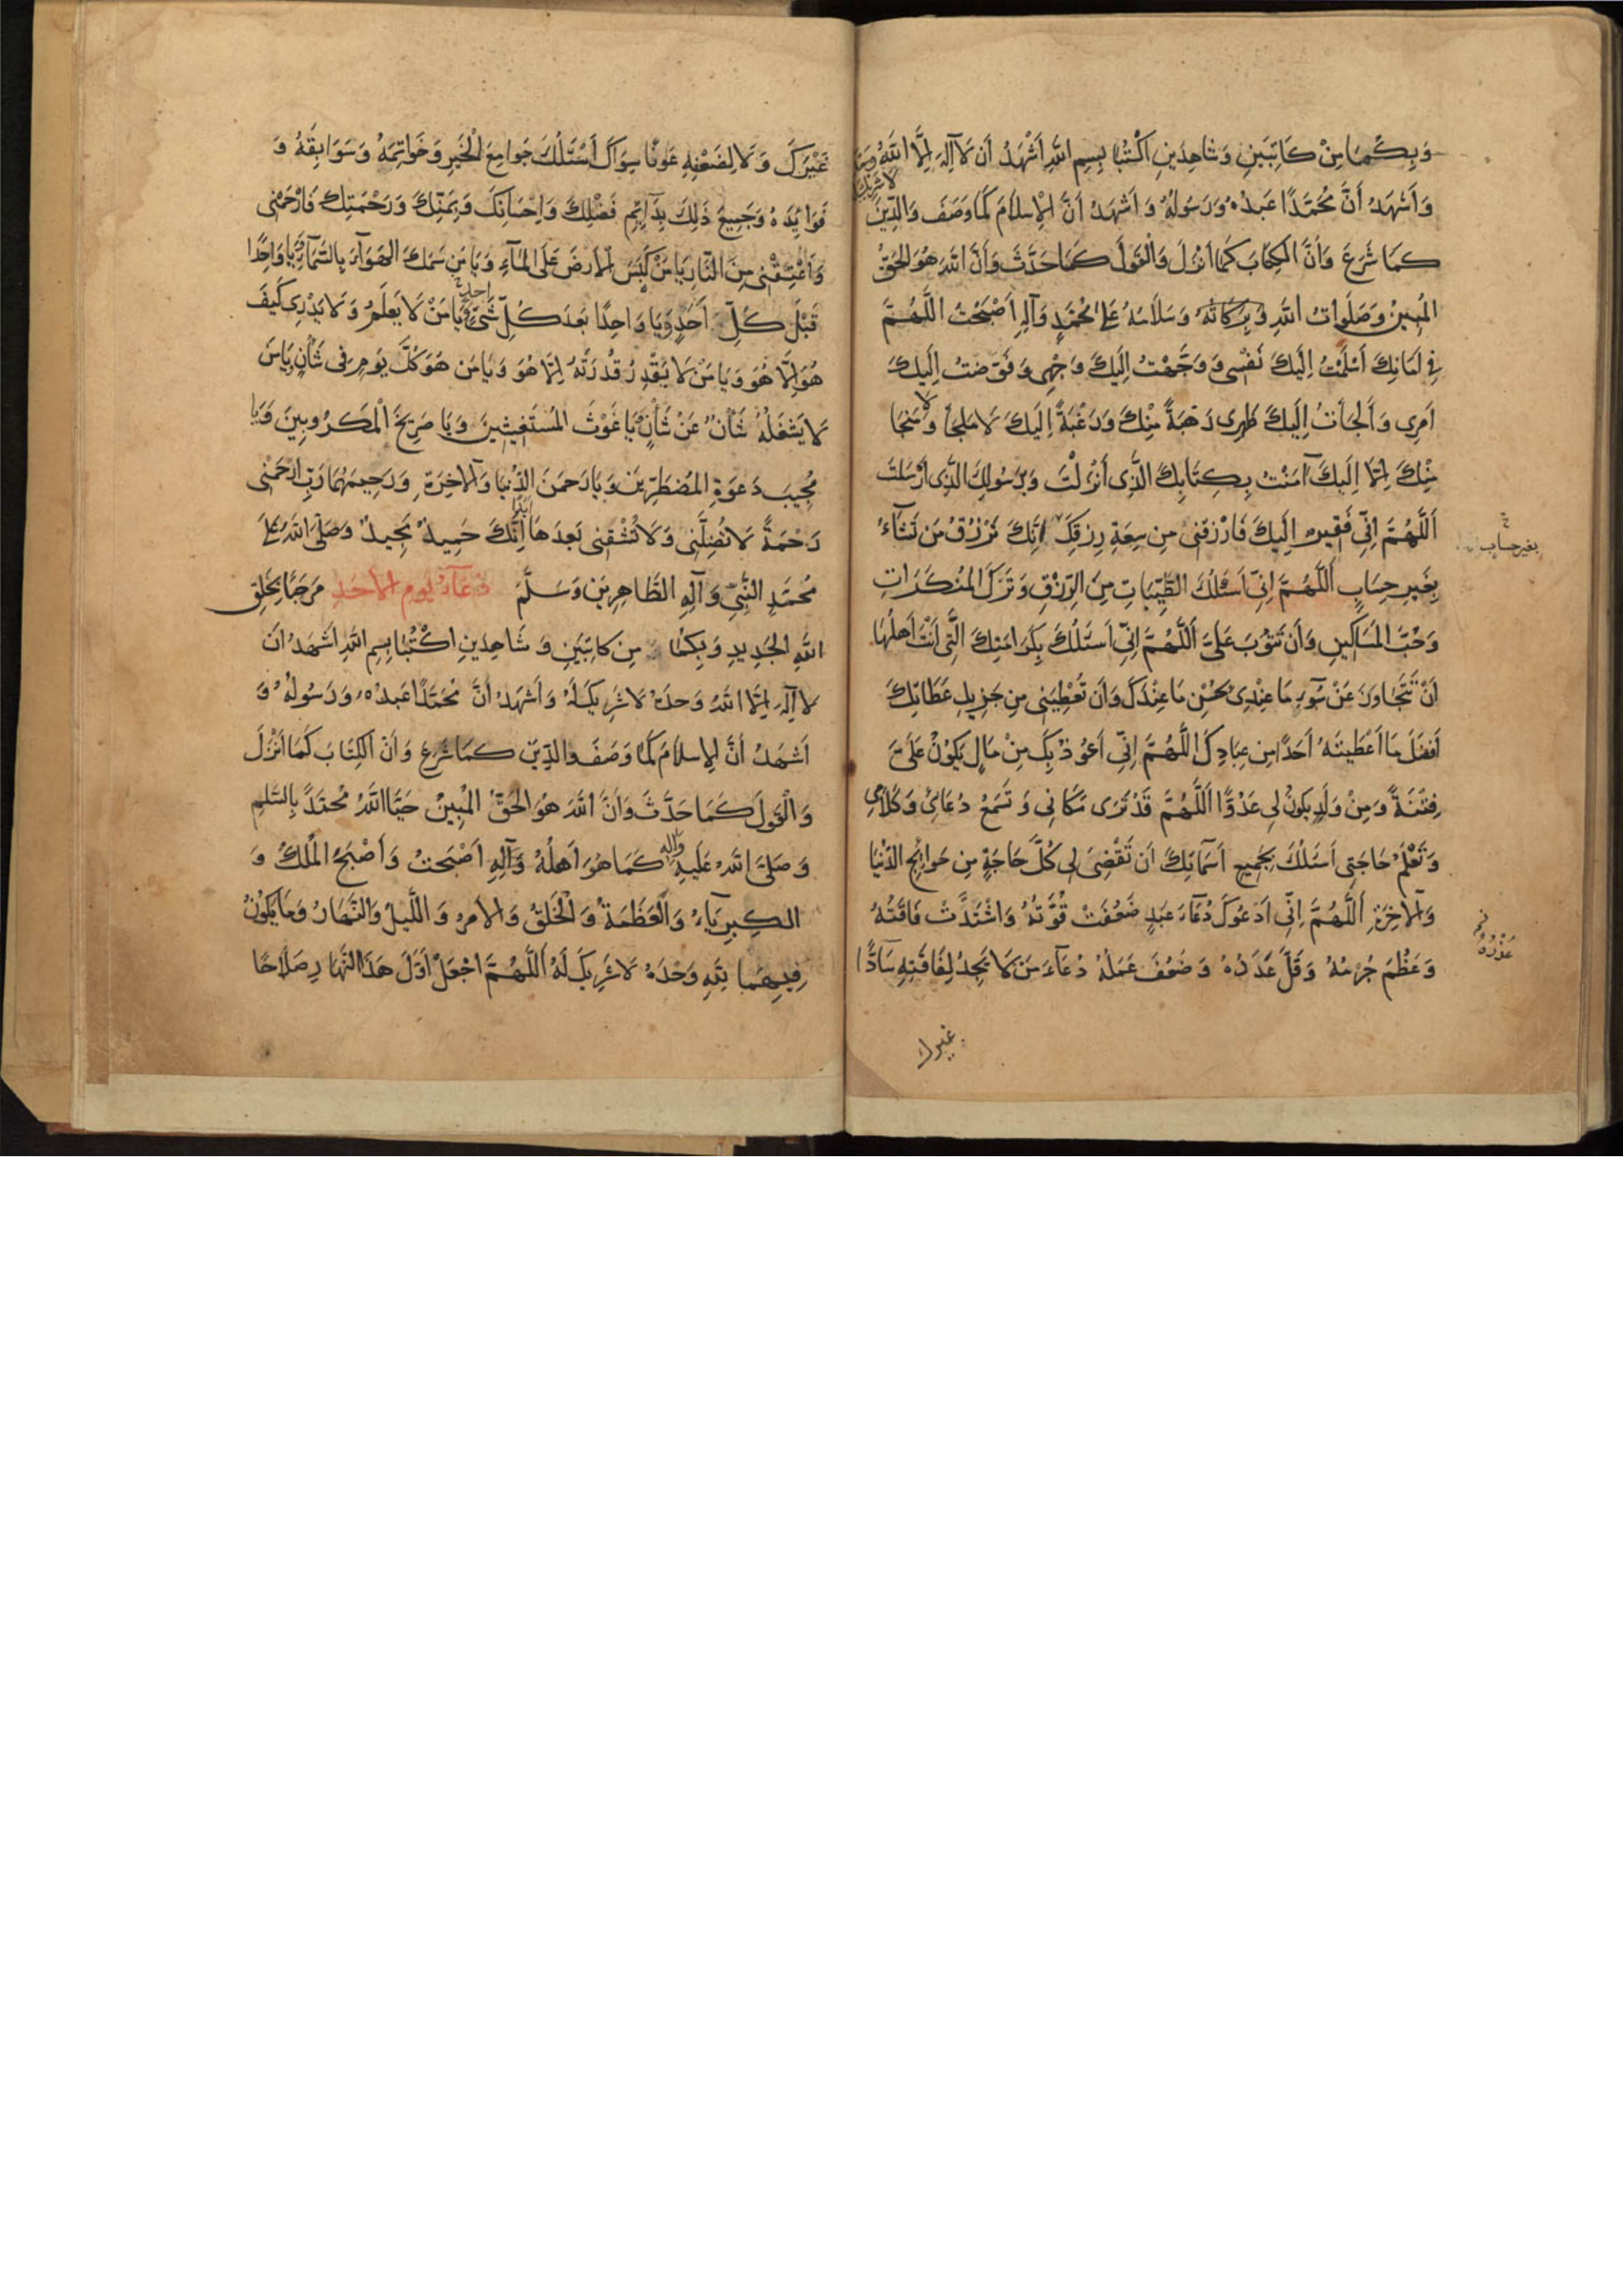 وَبِكُمَا مِنْ كَاتِبَيْنِ وَشَاهِدَيْنِ اكْتُبَا بِسْمِ اللهِ اَشْهَدُ اَنْ لَا اِلٰهَ اِلَّا اللهُ وَحْدَهُ
لا شريك له
وَاَشْهَدُ اَنَّ مُحَمَّدًا عَبْدُهُ وَرَسُولُهُ وَاَشْهَدُ اَنَّ الْاِسْلَامَ كَمَا وَصَفَ وَالدِّينَ
كَمَا شَرَعَ وَاَنَّ الْكِتَابَ كَمَا اَنْزَلَ وَالْقَوْلَ كَمَا حَدَّثَ وَاَنَّ اللهَ هُوَ الْحَقُّ
الْمُبِينُ وَصَلَوَاتُ اللهِ وَبَرَكَاتُهُ وَسَلَامُهُ عَلَى مُحَمَّدٍ وَآلِهِ اَصْبَحْتُ اللّٰهُمَّ
فِي اَمَانِكَ اَسْلَمْتُ اِلَيْكَ نَفْسِي وَوَجَّهْتُ اِلَيْكَ وَجْهِي وَفَوَّضْتُ اِلَيْكَ
اَمْرِي وَاَلْجَأْتُ اِلَيْكَ ظَهْرِي رَهْبَةً مِنْكَ وَرَغْبَةً اِلَيْكَ لَا مَلْجَأَ وَلَا مَنْجَا
مِنْكَ اِلَّا اِلَيْكَ آمَنْتُ بِكِتَابِكَ الَّذِي اَنْزَلْتَ وَبِرَسُولِكَ الَّذِي اَرْسَلْتَ
اَللّٰهُمَّ اِنِّي فَقِيرٌ اِلَيْكَ فَارْزُقْنِي مِنْ سِعَةِ رِزْقِكَ اِنَّكَ تَرْزُقُ مَنْ تَشَاءُ
بغير حساب
بِغَيْرِ حِسَابٍ اَللّٰهُمَّ اِنِّي اَسْئَلُكَ الطَّيِّبَاتِ مِنَ الرِّزْقِ وَتَرْكَ الْمُنْكَرَاتِ
وَحُبَّ الْمَسَاكِينِ وَاَنْ تَتُوبَ عَلَيَّ اَللّٰهُمَّ اِنِّي اَسْئَلُكَ بِكَرَامَتِكَ الَّتِي اَنْتَ اَهْلُهَا
اَنْ تَتَجَاوَزَ عَنْ سُوءِ مَا عِنْدِي بِحُسْنِ مَا عِنْدَكَ وَاَنْ تُعْطِيَنِي مِنْ جَزِيلِ عَطَائِكَ
اَفْضَلَ مَا اَعْطَيْتَهُ اَحَدًا مِنْ عِبَادِكَ اللّٰهُمَّ اِنِّي اَعُوذُ بِكَ مِنْ مَالٍ يَكُونُ عَلَيَّ
فِتْنَةً وَمِنْ وَلَدٍ يَكُونُ لِي عَدُوًّا اَللّٰهُمَّ قَدْ تَرَى مَكَانِي وَتَسْمَعُ دُعَائِي وَكَلَامِي
وَتَعْلَمُ حَاجَتِي اَسْئَلُكَ بِجَمِيعِ اَسْمَائِكَ اَنْ تَقْضِيَ لِي كُلَّ حَاجَةٍ مِنْ حَوَائِجِ الدُّنْيَا
وَالْآخِرَةِ اَللّٰهُمَّ اِنِّي اَدْعُوكَ دُعَاءَ عَبْدٍ ضَعُفَتْ قُوَّتُهُ وَاشْتَدَّتْ فَاقَتُهُ
وَعَظُمَ جُرْمُهُ وَقَلَّ عَدَدُهُ وَضَعُفَ عَمَلُهُ دُعَاءَ مَنْ لَا يَجِدُ لِفَاقَتِهِ سَادًّا
عُذْرُهُ
غيرك
غَيْرَكَ وَلَا لِضَعْفِهِ عَوْنًا سِوَاكَ اَسْئَلُكَ جَوَامِعَ الْخَيْرِ وَخَوَاتِمَهُ وَسَوَابِقَهُ وَ
فَوَائِدَهُ وَجَمِيعَ ذٰلِكَ بِدَائِمِ فَضْلِكَ وَاِحْسَانِكَ وَبِمَنِّكَ وَرَحْمَتِكَ فَارْحَمْنِي
وَاَعْتِقْنِي مِنَ النَّارِ يَا مَنْ كَبَسَ الْاَرْضَ عَلَى الْمَاءِ وَيَا مَنْ سَمَكَ الْهَوَاءَ بِالسَّمَاءِ وَيَا وَاحِدًا
قَبْلَ كُلِّ اَحَدٍ وَيَا وَاحِدًا بَعْدَ كُلِّ شَيْءٍ وَيَا مَنْ لَا يَعْلَمُ وَلَا يَدْرِي كَيْفَ
هُوَ اِلَّا هُوَ وَيَا مَنْ لَا يَقْدِرُ قُدْرَتَهُ اِلَّا هُوَ وَيَا مَنْ هُوَ كُلَّ يَوْمٍ فِي شَأْنٍ يَا مَنْ
لَا يَشْغَلُهُ شَأْنٌ عَنْ شَأْنٍ يَا غَوْثَ الْمُسْتَغِيثِينَ وَيَا صَرِيخَ الْمَكْرُوبِينَ وَيَا
مُجِيبَ دَعْوَةِ الْمُضْطَرِّينَ وَيَا رَحْمٰنَ الدُّنْيَا وَالْآخِرَةِ وَرَحِيمَهُمَا رَبِّ ارْحَمْنِي
رَحْمَةً لَا تُضِلَّنِي وَلَا تُشْقِنِي بَعْدَهَا اَبَدًا اِنَّكَ حَمِيدٌ مَجِيدٌ وَصَلَّى اللهُ عَلَى
مُحَمَّدٍ النَّبِيِّ وَآلِهِ الطَّاهِرِينَ وَسَلَّمَ دُعَاءُ يَوْمِ الْاَحَدِ مَرْحَبًا بِخَلْقِ
اللهِ الْجَدِيدِ وَبِكُمَا مِنْ كَاتِبَيْنِ وَشَاهِدَيْنِ اكْتُبَا بِسْمِ اللهِ اَشْهَدُ اَنْ
لَا اِلٰهَ اِلَّا اللهُ وَحْدَهُ لَا شَرِيكَ لَهُ وَاَشْهَدُ اَنَّ مُحَمَّدًا عَبْدُهُ وَرَسُولُهُ وَ
اَشْهَدُ اَنَّ الْاِسْلَامَ كَمَا وَصَفَ وَالدِّينَ كَمَا شَرَعَ وَاَنَّ الْكِتَابَ كَمَا اَنْزَلَ
وَالْقَوْلَ كَمَا حَدَّثَ وَاَنَّ اللهَ هُوَ الْحَقُّ الْمُبِينُ حَيَّا اللهُ مُحَمَّدًا بِالسَّلَامِ
وَصَلَّى اللهُ عَلَيْهِ وَآلِهِ كَمَا هُوَ اَهْلُهُ وَآلِهِ اَصْبَحْتُ وَاَصْبَحَ الْمُلْكُ وَ
الْكِبْرِيَاءُ وَالْعَظَمَةُ وَالْخَلْقُ وَالْاَمْرُ وَاللَّيْلُ وَالنَّهَارُ وَمَا يَكُونُ
فِيهِمَا لِلّٰهِ وَحْدَهُ لَا شَرِيكَ لَهُ اَللّٰهُمَّ اجْعَلْ اَوَّلَ هٰذَا النَّهَارِ صَلَاحًا